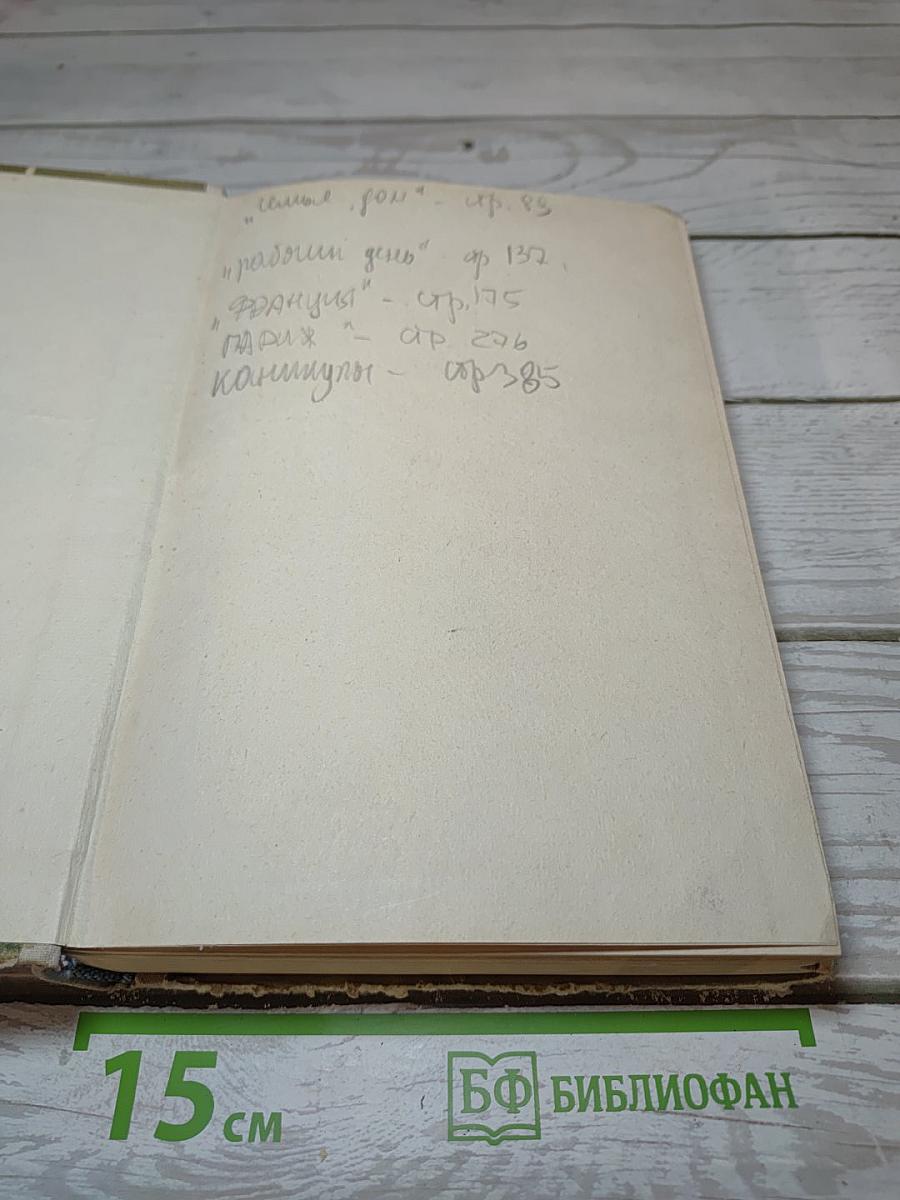 "семья, дом" - стр. 83
"рабочий день" стр 137.
"Франция" - стр. 175
"ПАРИЖ" - стр 276
Каникулы - стр 385
15 см
БФ БИБЛИОФАН